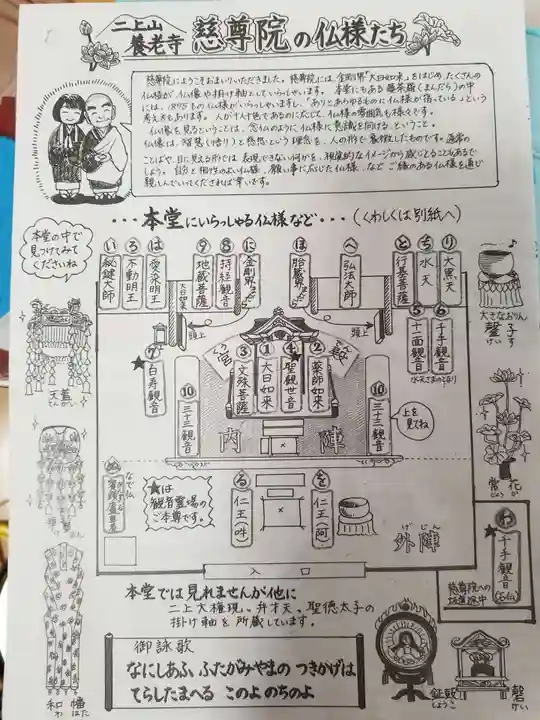 二上山
養老寺
慈尊院の仏様たち
慈尊院にようこそおまいりいただきました。慈尊院には金剛界「大日如来」をはじめ、たくさんの
仏様が、仏像や掛け軸としていらっしゃいます。本堂にもある曼荼羅(まんだら)の中
には、1875もの仏様がいらっしゃいますし、「ありとあらゆるものに仏様が宿っている」という
考え方もあります。人が十人十色であるのに応じて、仏様の雰囲気も様々です。
仏像を見るということは、念仏のように仏様に意識を向ける、ということ。
仏像は、智慧(悟り)と慈悲という理想を、人の形で象徴したものです。通常の
ことばや、目に見える形では表現できない何かを、視覚的なイメージから感じとることもあるで
しょう。自分と相性のよい仏様、願い事に応じた仏様、など ご縁のある仏様を通じ
親しんでいてくだされば幸いです。
・・・本堂にいらっしゃる仏様など・・・(くわしくは別紙へ)
本堂の中で
見つけてみて
くださいね
い 秘鍵大師
ろ 不動明王
は 愛染明王
大日如来
⑨ 地蔵菩薩
⑧ 持経観音
に 金剛界まんだら
ほ 胎蔵界まんだら
へ 弘法大師
と 行基菩薩
ち 水天
り 大黒天
頭上
頭上
⑤ 十一面観音
⑥ 千手観音
水天さまのとなり
大きなおりん
磬子
けいす
天蓋
てんがい
★⑦ 白寿観音
③ 文殊菩薩
① 大日如来
④ 聖観世音
② 薬師如来
⑩ 三十三観音
⑩ 三十三観音
上を
見てね
内陣
なで仏
賓頭盧尊者
★は
観音霊場の
ご本尊です。
る 仁王(吽)
を 仁王(阿)
げじん
外陣
常花
じょうか
★わ 千手観音
慈尊院への
坂道途中
入口
本堂では見れませんが他に
二上大権現、弁才天、聖徳太子の
掛け軸を所蔵しています。
御詠歌
なにしあふ ふたがみやまの つきかげは
てらしたまへる このよ のちのよ
和幡
わばた
鉦鼓
しょうこ
磬
けい